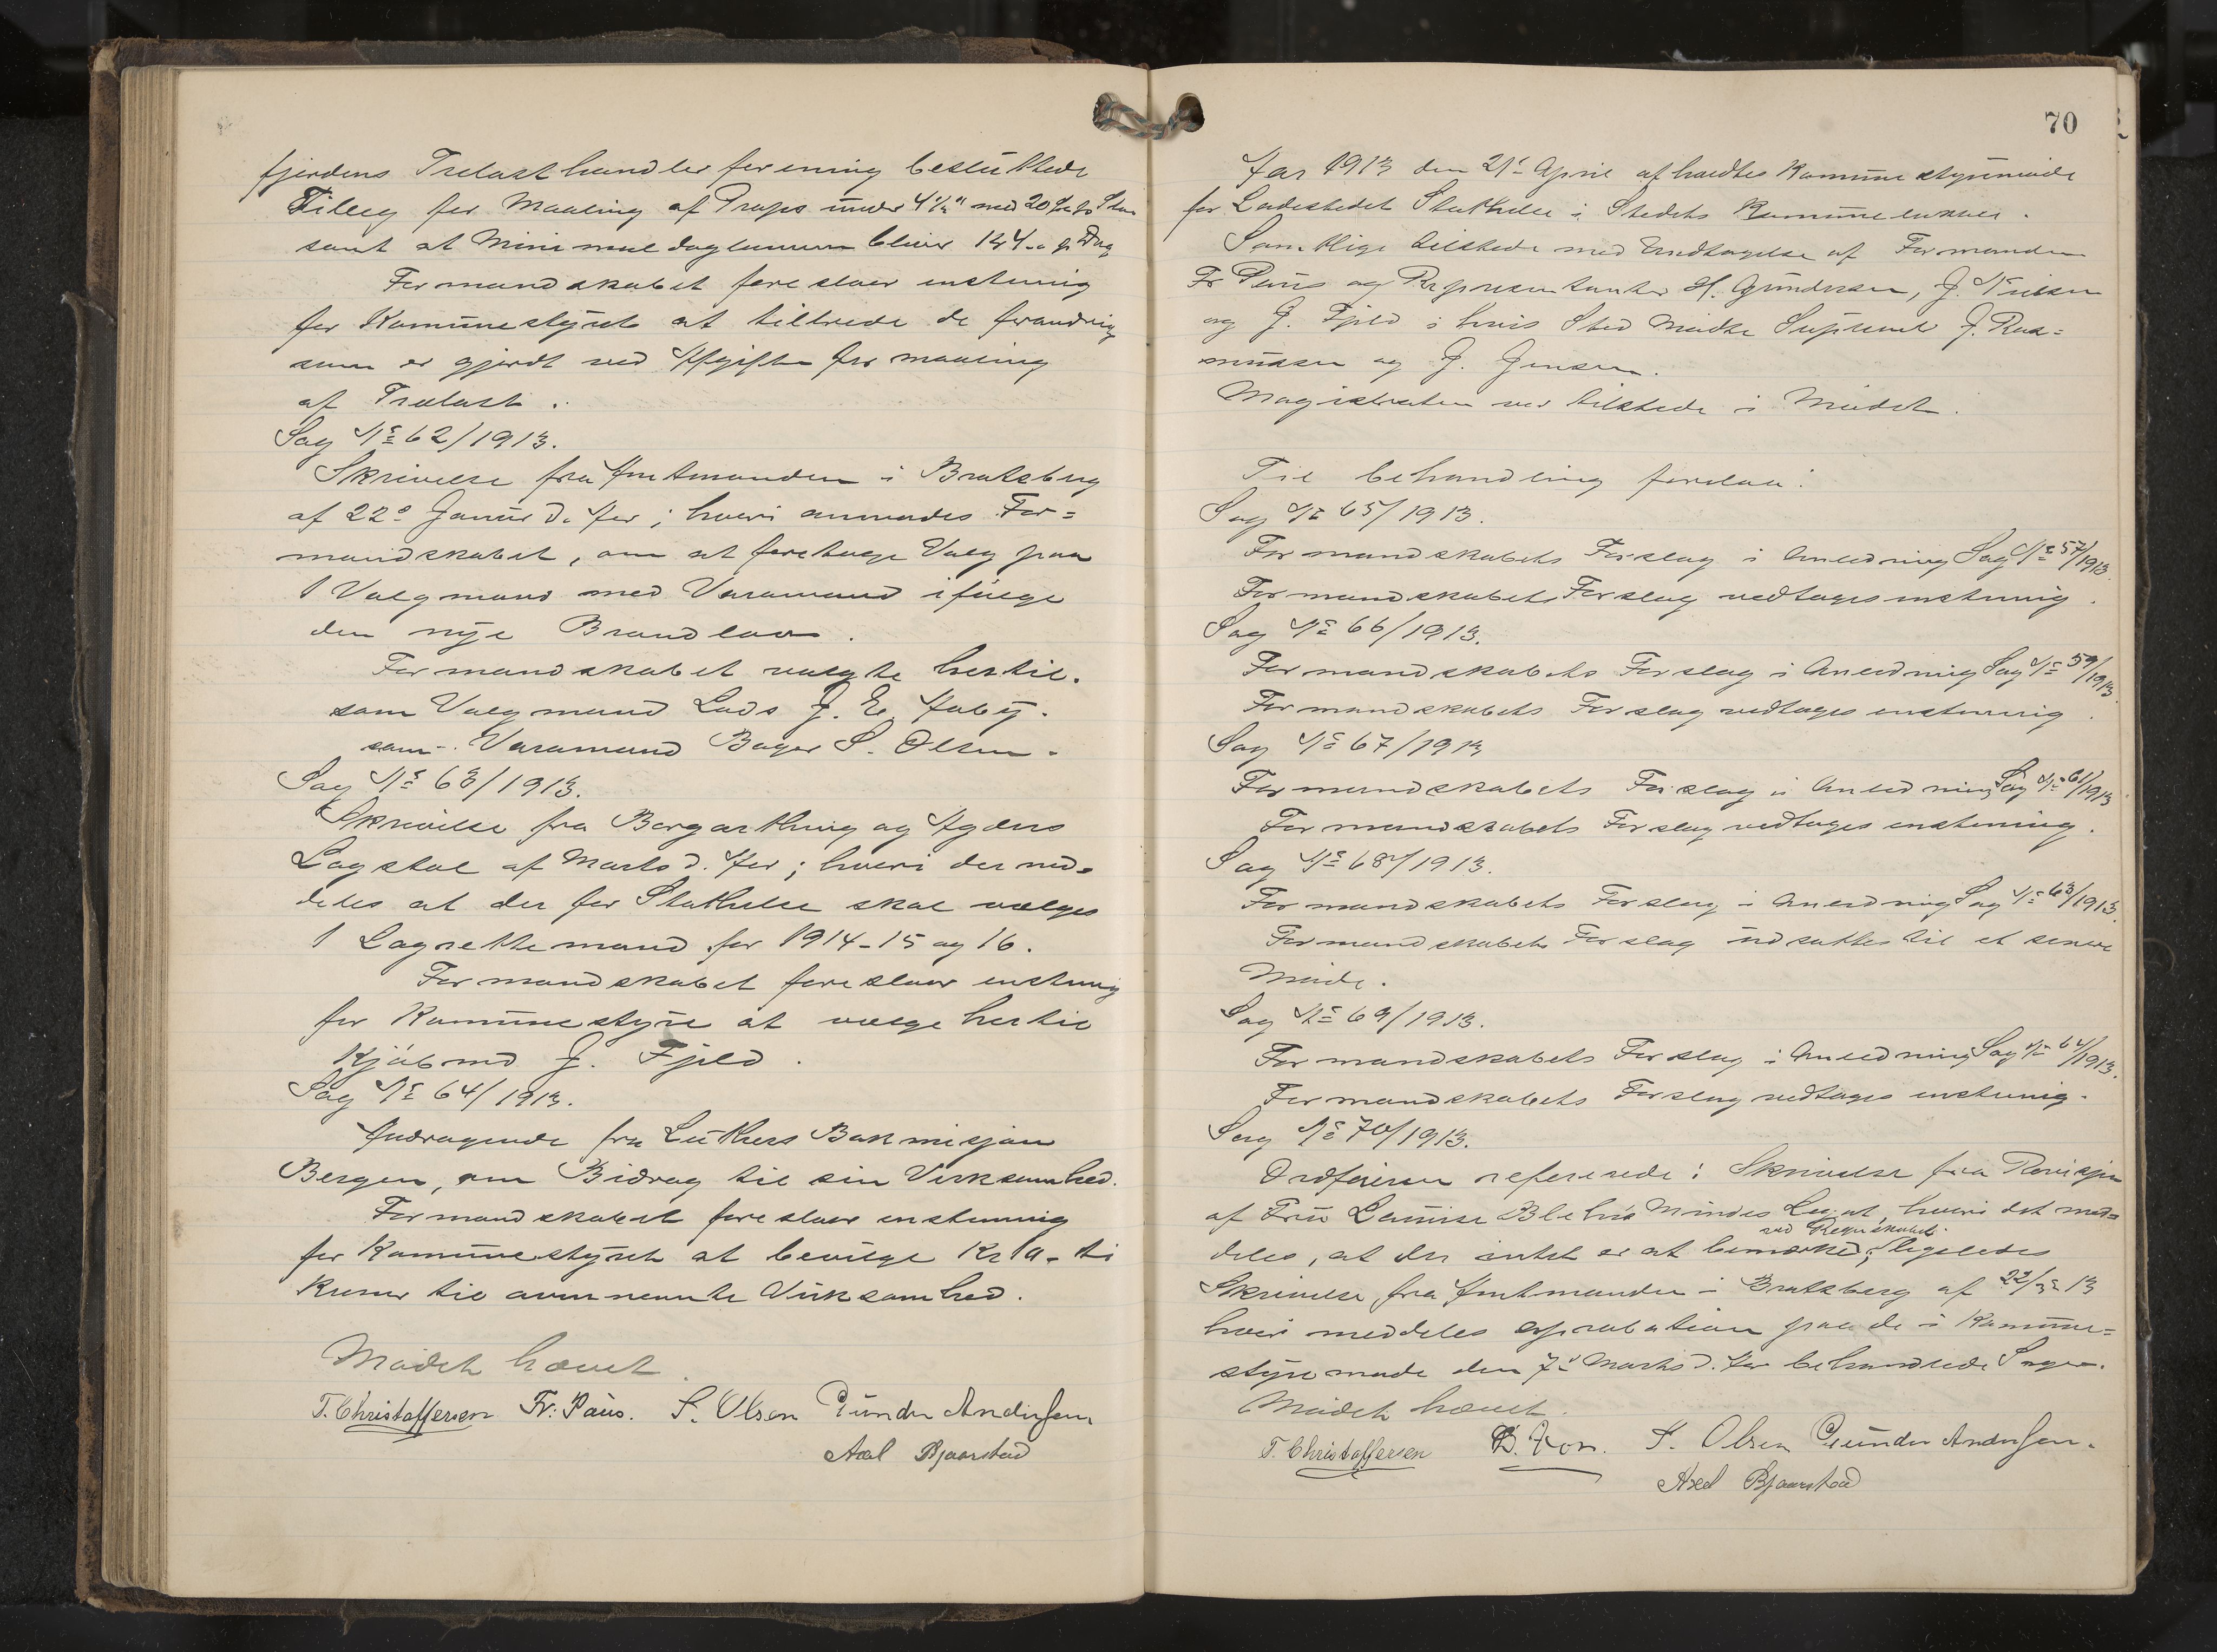 fjordens Trelasthandlerforening besluttede
Tillæg for Maaling af Props under 4½" med 20 Øre pr Stan
samt at Minimaldaglønnen bliver Kr 4.- pr Dag
Formandskabet foreslaar enstemig
for Kommunestyret at tiltræde de forandring
som er gjordt ved Afgiften for maaling
af Trælast.
Sag No 62/1913.
Skrivelse fra Amtmanden i Bratsberg
af 22de Januar d. Aar; hvori anmodes For=
mandskabet, om at foretage Valg paa
1 Valgmand med Varamand ifølge
den nye Brandlov.
Formandskabet valgte hertil.
som Valgmand Lods J. E. Aaby.
som -. Varamand Bager S. Olsen.
Sag No 63/1913.
Skrivelse fra Borgarthing og Agders
Lagstol af Marts d. Aar; hvori der med=
deles at der for Stathelle skal vælges
1 Lagrettemand for 1914-15 og 16.
Formandskabet foreslaar enstemig
for Kommunestyre at vælge hertil
Kjøbmd J. Fjeld.
Sag No 64/1913.
Andragende fra Luthers Bokmisjon
Bergen, om Bidrag til sin Virksomhed.
Formandskabet foreslaar enstemmig
for Kommunestyret at bevilge Kr 10 - ti
Kroner til ovennevnte Virksomhed.
Mødet hævet.
T. Christoffersen Fr: Paus. S. Olsen Gunder Andersen
Axel Bjaarstad
70
Aar 1913 den 21' April afholdtes Kommunestyremøde
for Ladestedet Stathelle i Stedets Kommunelokale.
Samtlige tilstede med Undtagelse af Formanden
Fr Paus og Repræsentanter H. Gundersen, J. Nielsen
og J. Fjeld i hvis Sted mødte Supleant J. Ras=
mussen og J. Jensen.
Magistraten var tilstede i Mødet.
Til behandling forelaa:
Sag No 65/1913.
Formandskabets Forslag i Anledning Sag No 57/1913.
Formandskabets Forslag vedtages enstemig.
Sag No 66/1913.
Formandskabets Forslag i Anledning Sag No 59/1913.
Formandskabets Forslag vedtages enstemmig.
Sag No 67/1913
Formandskabets Forslag i Anledning Sag No 61/1913
Formandskabets Forslag vedtages enstemig.
Sag No 68/1913.
Formandskabets Forslag i Anledning Sag No 63/1913.
Formandskabets Forslag udsattes til et senere
Møde.
Sag No 69/1913.
Formandskabets Forslag i Anledning Sag No 64/1913.
Formandskabets Forslag vedtages enstemig.
Sag No 70/1913.
Ordføreren refererede: Skrivelse fra Revisjon
af Fru Louise Blehrs Mindes Legat, hvori det med=
ved Regnskabet
deles, at der intet er at bemærke; ligeledes
Skrivelse fra Amtmanden i Bratsberg af 22/3 - 13
hvori meddeles approbation paa de i Kommune=
styremøde den 7' Marts d. Aar behandlede Sager.
Mødet hævet.
T. Christoffersen S. Olsen Gunder Andersen.
Axel Bjaarstad